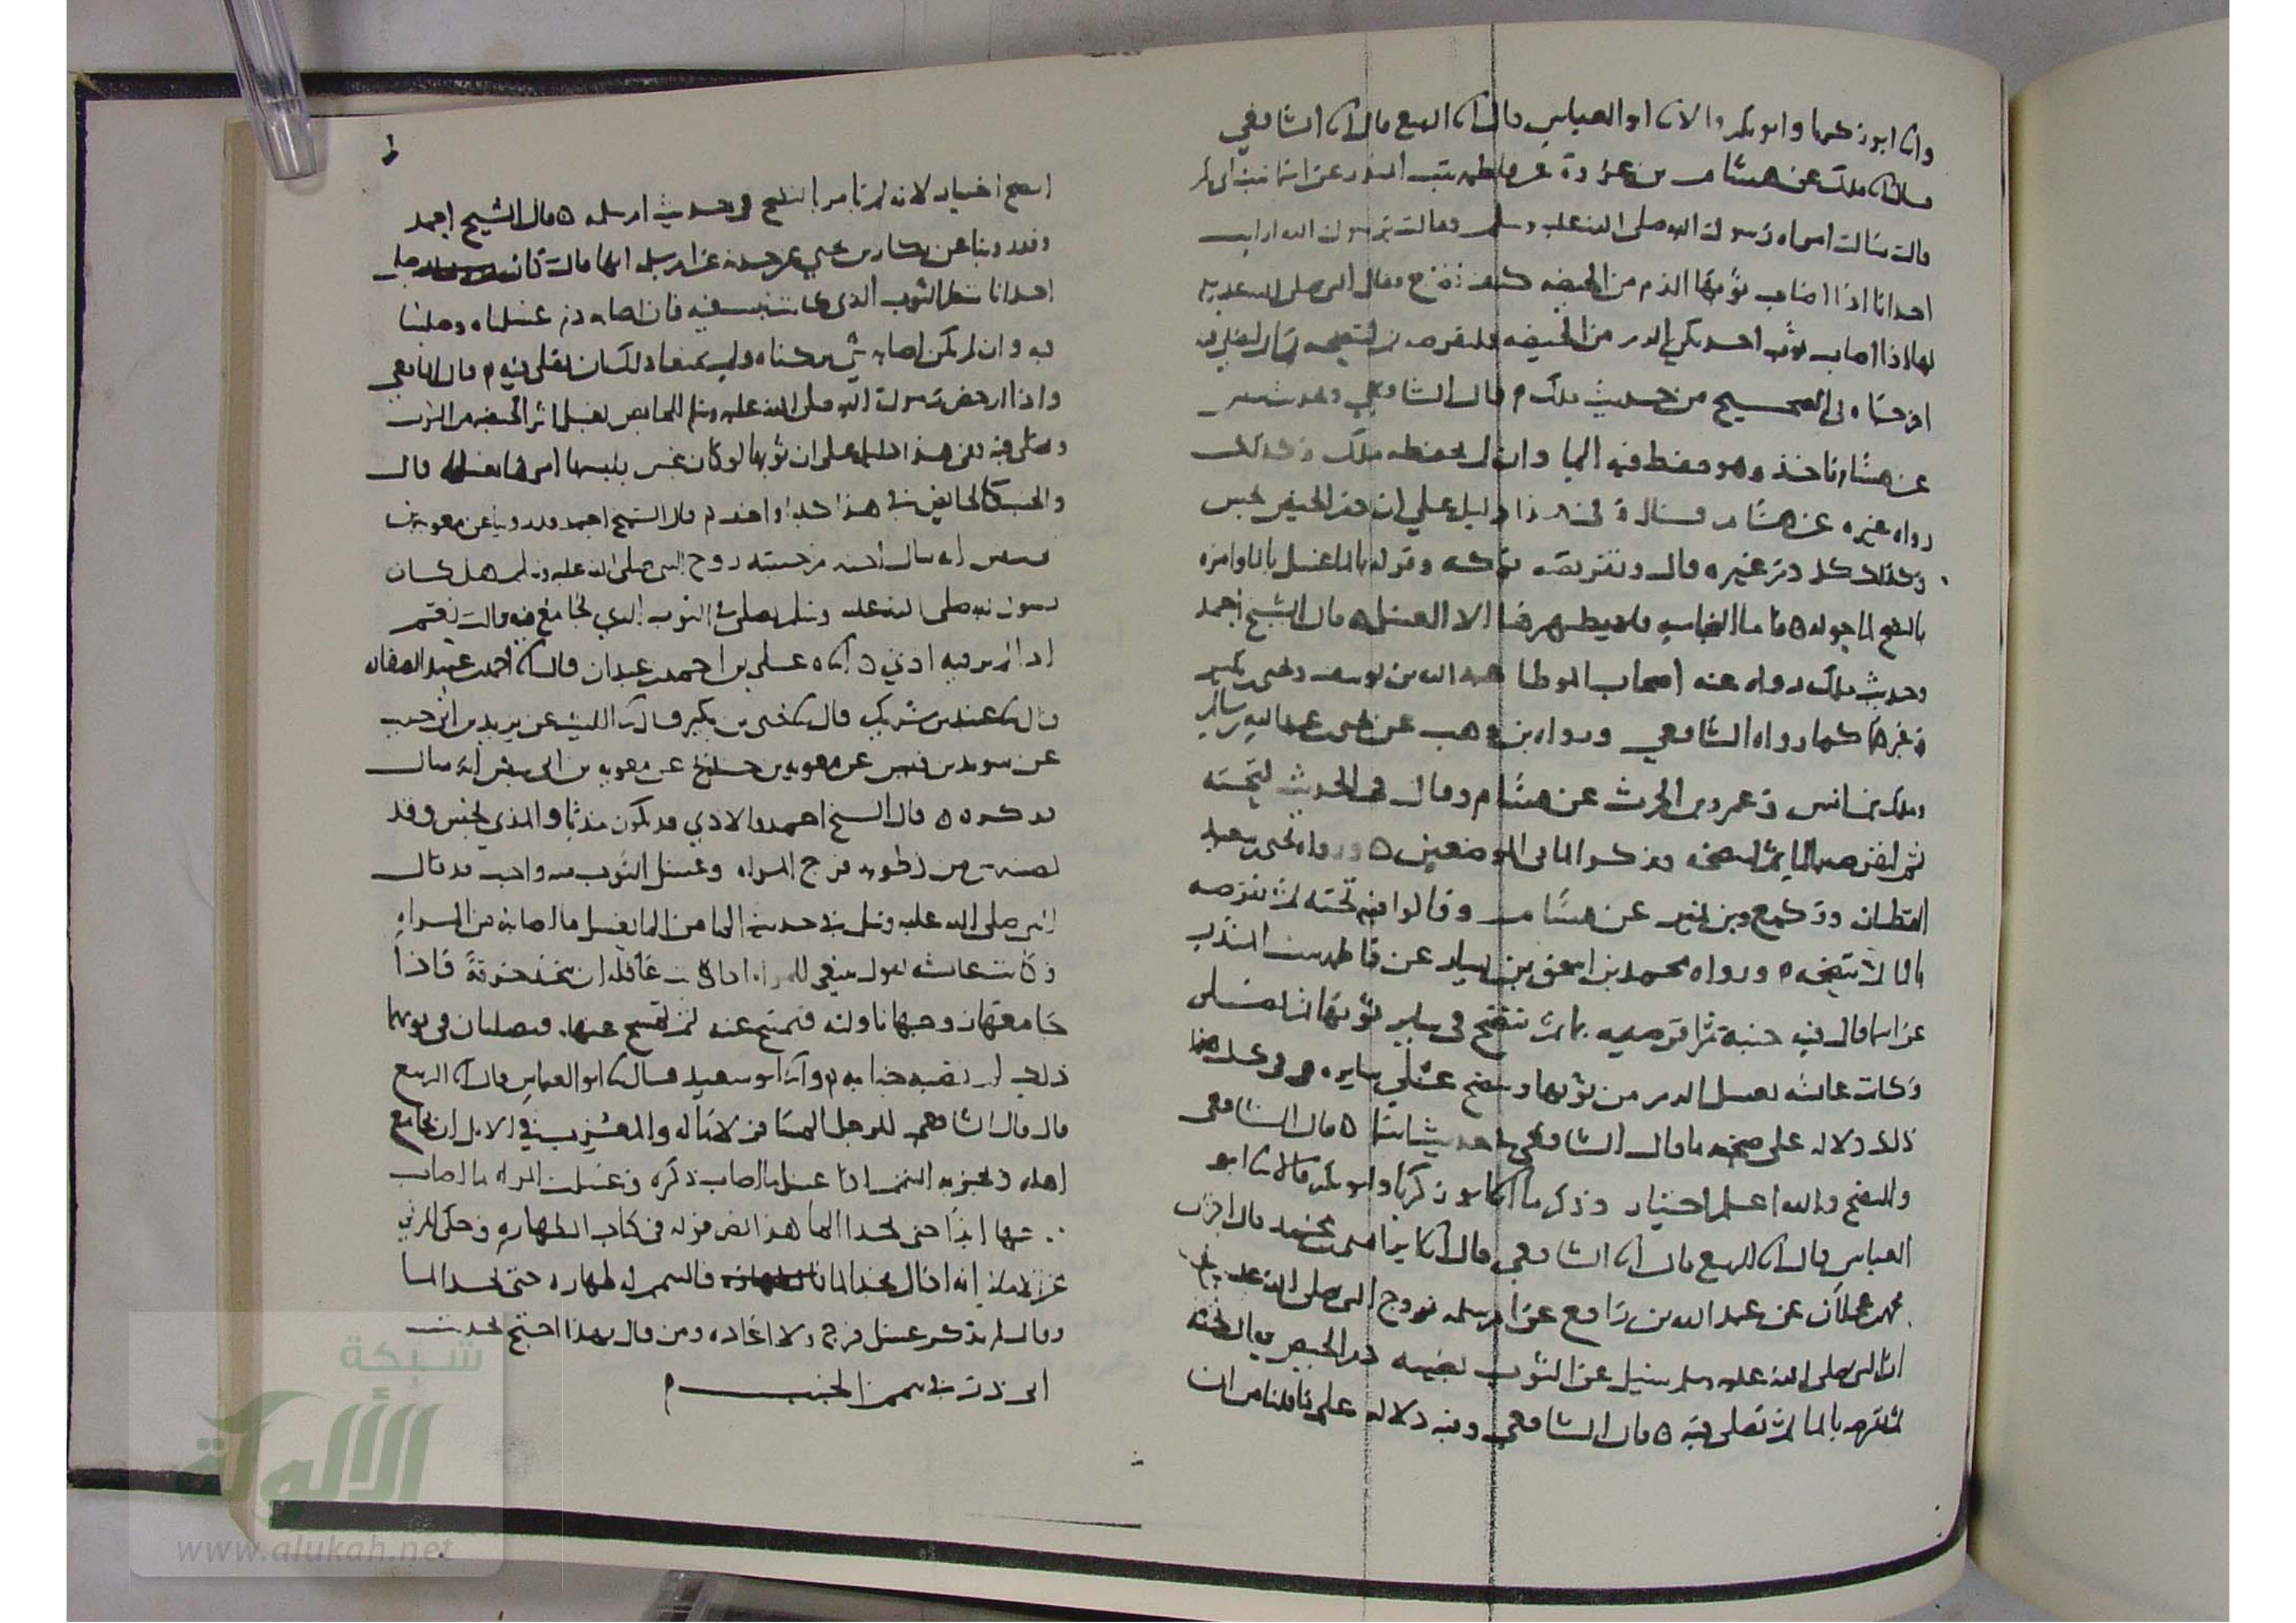 وانا ابو زكريا وابو بكر قالا انا ابو العباس قال انا الربيع قال انا الشافعي
قال انا ملك عن هشام بن عروة عن فاطمه بنت المنذر عن اسما بنت ابي بكر
قالت سالت امراه رسول الله صلى الله عليه وسلم فقالت يرسول الله ارايت
احدانا اذا اصاب ثوبها الدم من الحيضه كيف تصنع فقال النبي صلى الله عليه
لها اذا اصاب ثوب احديكن الدم من الحيضه فلتقرصه ثم لتنضحه بما ثم لتصلي فيه
اخرجاه في الصحيح من حديث ملك م قال الشافعي وحديث
عن هشام ناخذ وهو حفظ فيه الما وان لم يحفظه ملك وكذلك
رواه غيره عن هشام قال وفي هذا دليل علي ان دم الحيض نجس
وكذلك كل دم غيره قال وتقريصه فركه وقوله بالما غسل بالما وامره
بالنضح لما حوله ه فاما النجاسه فلا يطهرها الا الغسل ه قال الشيخ احمد
وحديث ملك رواه عنه اصحاب الموطا عبد الله بن يوسف ويحيى بن بكير
وغيرهما كما رواه الشافعي ورواه بن وهب عن يحيى بن عبد الله بن سالم
وملك بن انس وعمرو بن الحرث عن هشام وقال في الحديث لتحته
ثم لتقرصه بالما ثم لتنضحه وذكر الما في الموضعين ه ورواه يحيى بن سعيد
القطان ووكيع وبن نمير عن هشام وقالوا فيه تحته ثم تقرصه
بالما ثم تنضحه ه ورواه محمد بن اسحق بن يسار عن فاطمه بنت المنذر
عن اسما قال فيه حتيه ثم اقرصيه بما ثم تنضح في ساير ثوبها ثم تصلي
وكانت عائشه تغسل الدم من ثوبها وتنضح على سايره وفي كل هذا
ذلك دلاله على صحه ما قال الشافعي في حديث اسما ه قال الشافعي
والنضح والله اعلم اختيار وذكر ما انا ابو زكريا وابو بكر قالا انا ابو
العباس قال انا الربيع قال انا الشافعي قال انا ابراهيم بن محمد قال اخبرني
محمد بن عجلان عن عبد الله بن رافع عن ام سلمه زوج النبي صلى الله عليه وسلم
ان النبي صلى الله عليه وسلم سئل عن الثوب يصيبه دم الحيض قال تحته
ثم تقرصه بالما ثم تصلي فيه ه قال الشافعي وفيه دلاله على ما قلنا من ان
النضح اختيار لانه لم يامر بالنضح في حديث ام سلمه ه قال الشيخ احمد
وقد روينا عن بكار بن يحيى عن جدته عن ام سلمه انها قالت كانت
احدانا تنظر الثوب الذي كانت تلبس فيه فان اصابه دم غسلناه وصلينا
فيه وان لم يكن اصابه شي تركناه ولم يمنعنا ذلك ان نصلي فيه م قال الشافعي
واذا ارخص رسول الله صلى الله عليه وسلم للحايض تغسل اثر الحيضه من الثوب
وتصلي فيه ففي هذا دليل على ان ثوبها لو كان نجس بلبسها امرها بغسله قال
والجنب كالحايض في هذا او اخف م قال الشيخ احمد وقد روينا عن معويه بن ابي
سفين انه سال اخته ام حبيبه زوج النبي صلى الله عليه وسلم هل كان
رسول الله صلى الله عليه وسلم يصلي في الثوب الذي يجامع فيه قالت نعم
اذا لم ير فيه اذي ه اناه علي بن احمد بن عبدان قال انا احمد بن عبيد الصفار
قال نا عبيد بن شريك قال نا يحيى بن بكير قال نا الليث عن يزيد بن ابي حبيب
عن سويد بن قيس عن معويه بن حديج عن معويه بن ابي سفين انه سال
فذكره ه قال الشيخ احمد والاذي قد يكون منيا والمذي نجس وقد
يصيبه شي من رطوبه فرج المراه وغسل الثوب منه واجب قد قال
النبي صلى الله عليه وسلم في حديث الما من الما يغسل ما اصابه من المراه
وكانت عائشه تقول ينبغي للمراه اذا كانت عاقله ان تتخذ خرقة فاذا
جامعها زوجها ناولته فيمسح عنه ثم تمسح عنها فيصليان في ثوبهما
ذلك ما لم تصبه جنابه ه وانا ابو سعيد قال نا ابو العباس قال انا الربيع
قال قال الشافعي للرجل المسافر لا ما له والمعزب في الابل ان يجامع
اهله ويجزيه التيمم اذا غسل ما اصاب ذكره وغسلت المراه ما اصاب
فرجها ابدا حتى يجدا الما هذا نص قوله في كتاب الطهاره وحكى المزني
انه اذا قال يجد الما قال تيمم لطهاره حتى يجد الما
وقال لم يذكر غسل فرج ولا اعاده ومن قال بهذا احتج بحديث
ابي ذر في تيمم الجنب م
شبكة
الألوكة
www.alukah.net